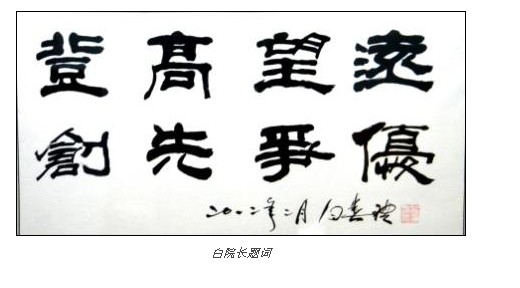 登高望遠
創先爭優
二〇一二年二月 白春禮
白院长题词